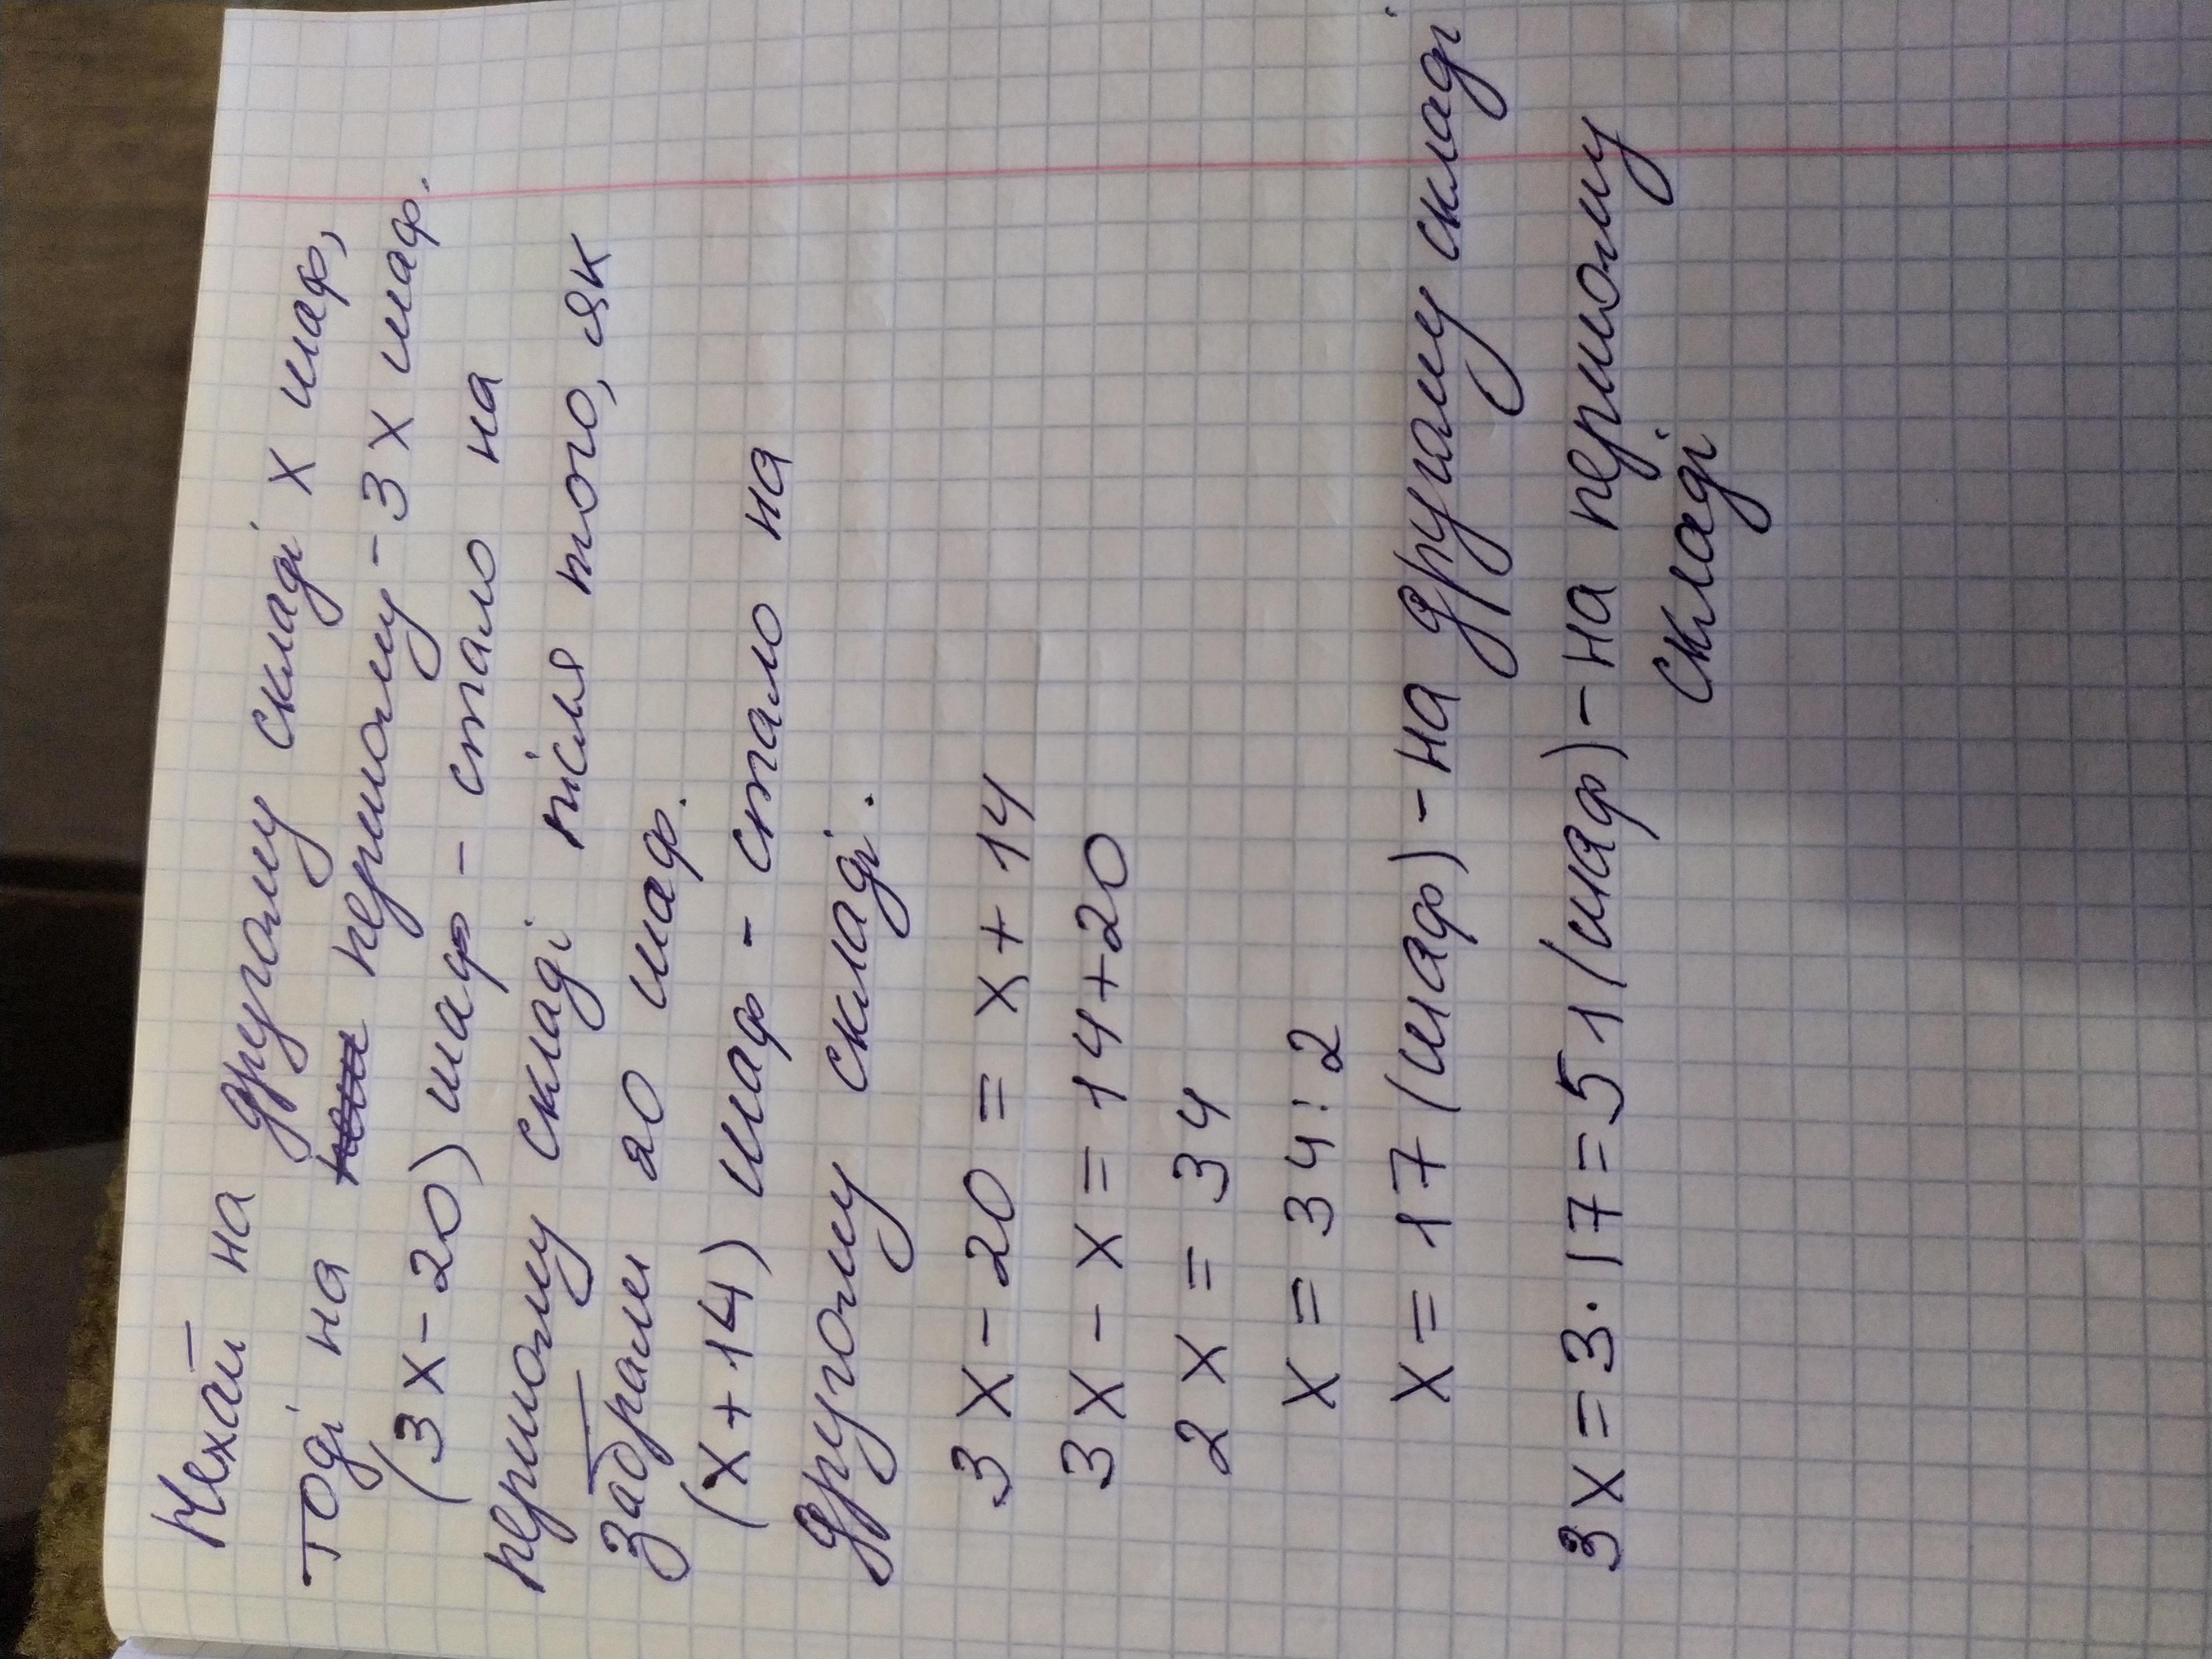 Нехай на другому складі х шаф,
тоді на першому - 3х шаф.
(3х - 20) шаф - стало на
першому складі після того, як
забрали 20 шаф.
(х + 14) шаф - стало на
другому складі.
3х - 20 = х + 14
3х - х = 14 + 20
2х = 34
х = 34 : 2
х = 17 (шаф) - на другому складі
3х = 3 · 17 = 51 (шаф) - на першому
складі